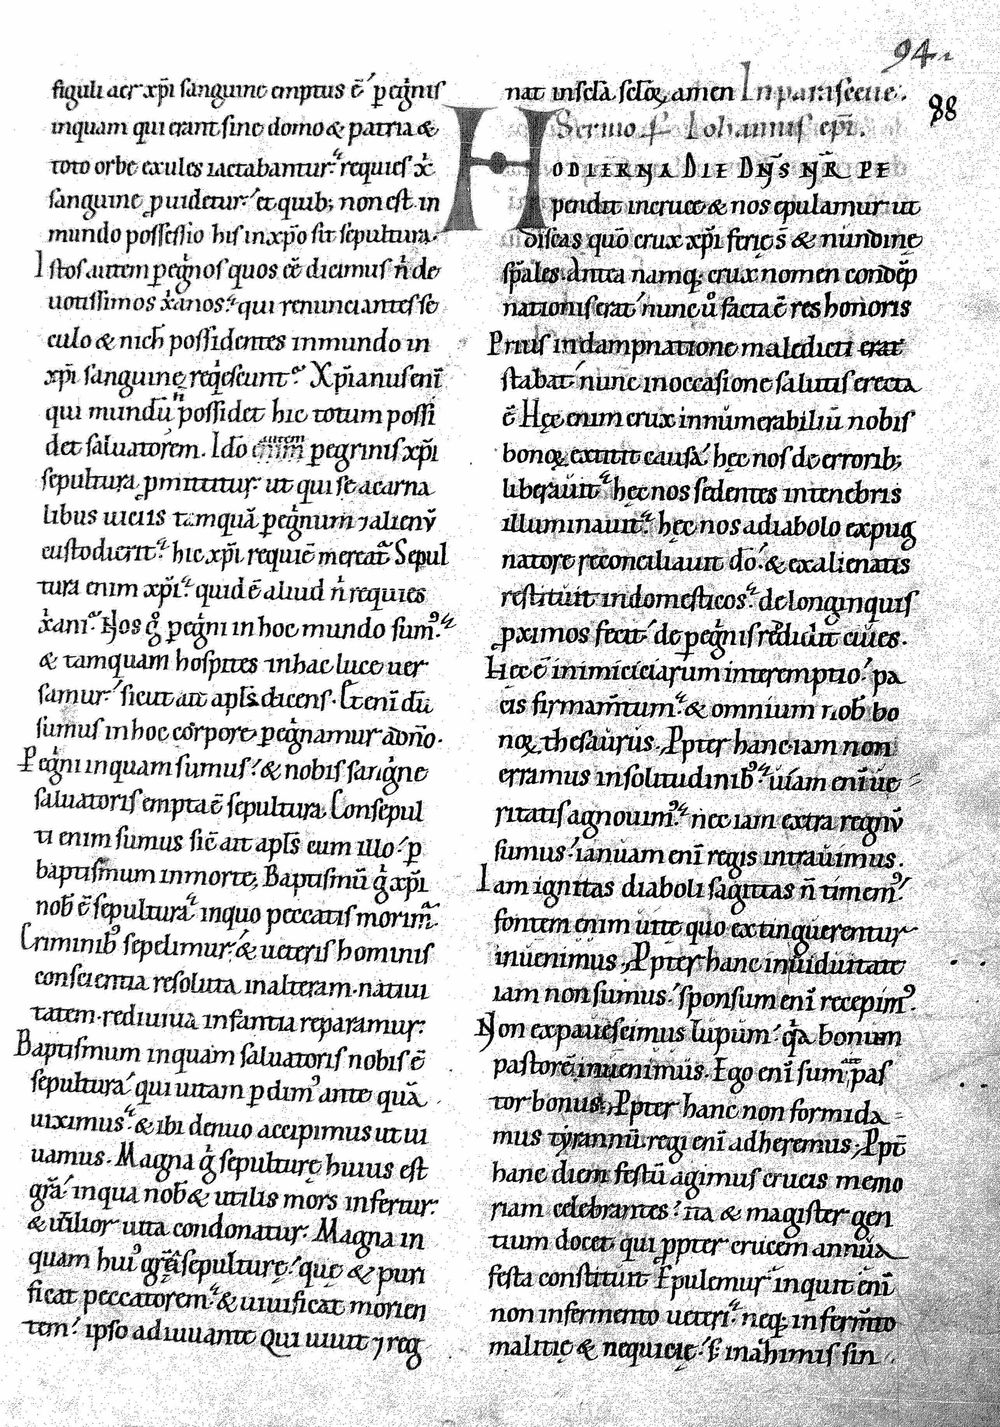 94
88
figuli acr̄ xp̄i sanguine emptus ē pegͥnis
inquam qui erant sine domo & patria &
toto orbe exules iactabantur requies xͥ
sanguine ꝓuidetur et quib; non est in
mundo possessio his in xp̄o sit sepultura.
Istos autem pegͥnos quos eē dicimus n̄ de
uotissimos xͥanos qui renunciantes se
culo & nich possidentes in mundo in
xp̄i sanguine reqͥescunt Xp̄ianus enī
qui mundū n̄ possidet hic totum possi
det saluatorem. Ideo autem pegrinis xp̄i
sepultura ꝓmittitur ut qui se a carna
libus uiciis tamquā pegͥnum ⁊ alienū
custodierit hic xp̄i requiē mereat̄ Sepul
tura enim xp̄i quid ē aliud n̄ requies
xͥani Nos gͦ pegͥni in hoc mundo sumꝰ
& tamquam hospites in hac luce uer
samur sicut ait apl̄s dicens. Et enī dū
sumus in hoc corpore pegͥnamur a dn̄o.
Pegͥni inquam sumus & nobis sanguine
saluatoris empta ē sepultura Consepul
ti enim sumus sic̄ ait apl̄s cum illo p
baptismum in morte, Baptismū gͦ xp̄i
nob̄ ē sepultura in quo peccatis morimꝰ
Criminibꝰ sepelimur & ueteris hominis
conscientia resoluta in alteram natiui
tatem rediuiua infantia reparamur
Baptismum inquam saluatoris nobis ē
sepultura qui uitam pdimꝰ ante quā
uiximus & ibi denuo accipimus ut ui
uamus. Magna gͦ sepulturę huius est
gr̄a in qua nob̄ & utilis mors infertur
& utilior uita condonatur. Magna in
quam huiꝰ gr̄a sepulturę que & puri
ficat peccatorem & uiuificat morien
tem ipso adiuuante Qui uiuit ⁊ reg
nat in scl̄a scl̄oꝝ amen In parasceue.
Sermo s̄ Iohannis ep̄i.
HODIERNA DIE DN̄S NR̄ PE
pendit in cruce & nos epulamur ut
discas quō crux xp̄i ferie s̄ & nundine
sp̄ales. Antea namq; crux nomen condēp
nationis erat nunc ů facta ē res honoris
Prius in dampnatione maledicti erat
stabat nunc in occasione salutis erecta
ē Hęc enim crux innumerabiliū nobis
bonoꝝ extitit causa hęc nos de errorib;
liberauit hęc nos sedentes in tenebris
illuminauit hęc nos a diabolo expug
natore reconciliauit dō & ex alienatis
restituit in domesticos de longinquis
ꝓximos fecit de pegͥnis reddidit ciues.
Hęc ē inimiciciarum interemptio pa
cis firmam̄tum & omnium nob̄ bo
noꝝ thesaurus. Ppter hanc iam non
erramus in solitudinibꝰ uiam enī ue
ritatis agnouimꝰ nec iam extra regnū
sumus ianuam enī regis intrauimus.
Iam ignitas diaboli sagittas n̄ timemꝰ
fontem enim uite quo extinguerentur
inuenimus, Ppter hanc in uiduitate
iam non sumus sponsum enī recepimꝰ.
Non expauescimus lupum qͥa bonum
pastorē inuenimus. Ego enī sum pas
tor bonus, Ppter hanc non formida
mus tyrannū regi enī adheremus, Ppt̄
hanc diem festū agimus crucis memo
riam celebrantes ita & magister gen
tium docet qui ppter crucem annua
festa constituit Epulemur inquit enī
non in fermento ueteri neq; in ferm̄to
malitię & nequicię s̄ in azimis sin